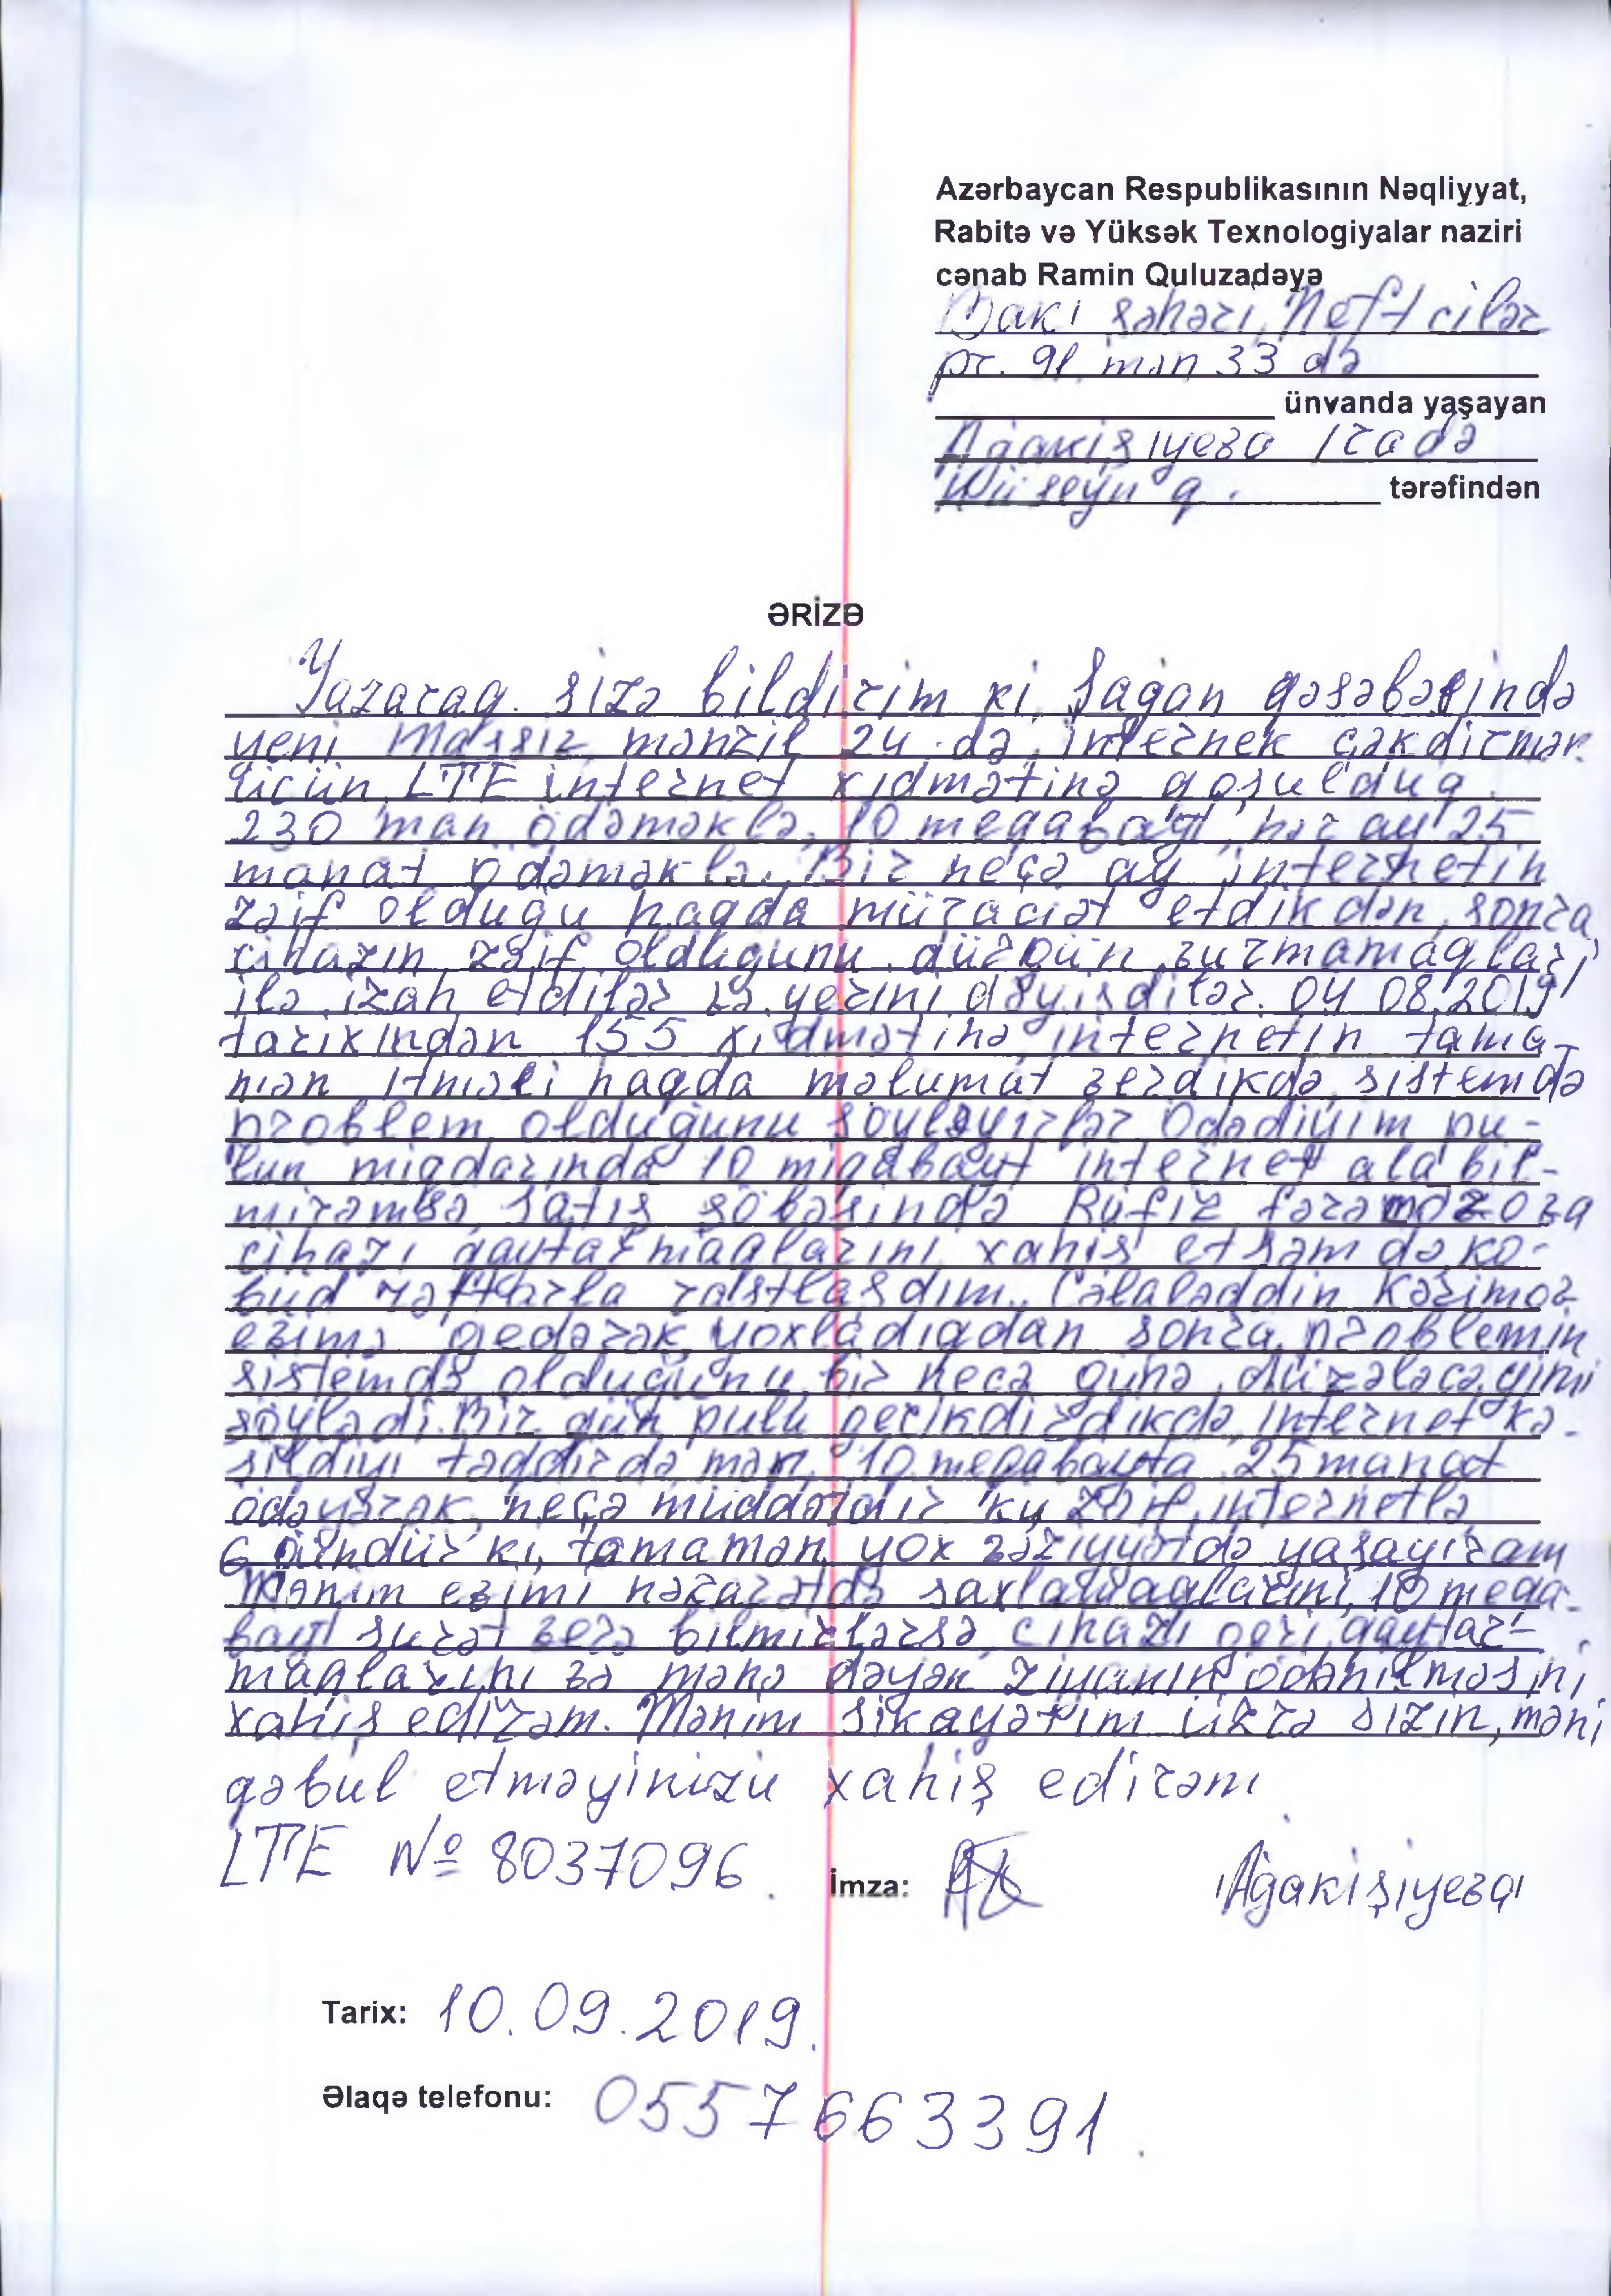 Azərbaycan Respublikasının Nəqliyyat,
Rabitə və Yüksək Texnologiyalar naziri
cənab Ramin Quluzadəyə
Bakı şəhəri, Neftcilər
pr. 91 mən 33 də
ünvanda yaşayan
Ağakişiyeva İradə
Hüseyn q. tərəfindən
ƏRİZƏ
Yazaraq sizə bildirim ki, Şağan qəsəbəsində
yeni Massiv mənzil 24 də, internek çəkdirmək
üçün LTE internet xidmətinə qoşulduq
230 man ödəməklə, 10 megabayt, hər ay 25
manat ödəməklə. Bir neçə ay internetin
zəif olduğu haqda müraciət etdikdən, sonra
cihazın zəif olduğunu düzgün vurmamaqları
ilə izah etdilər və yerini dəyişdilər. 04 08.2019
tarixindən 155 xidmətinə internetin tama-
mən itməsi haqda məlumat verdikdə, sistemdə
problem olduğunu söyləyirlər Ödədiyim pu-
lun miqdarında 10 migabayt internet ala bil-
mirəmsə satış şöbəsində Rüfiz Fərəmazova
cihazı qaytarmaqlarını xahiş etsəm də, ko-
bud rəftarla rastlaşdım. Cəlaləddin Kəzimov
evimə gedərək yoxladıqdan sonra, problemin
sistemdə olduğunu, bir necə günə düzələcəyini
söylədi. Bir gün pulu gecikdirdikdə, internet kə-
sildiyi təqdirdə mən 10 megabayta 25 manat
ödəyərək, neçə müddətdir ki, zəif internetlə
6 gündür ki, tamamən yox vəziyyətdə yaşayıram
Mənim evimi nəzarətdə saxlamaqlarını, 10 mega-
bayt surət verə bilmirlərsə, cihazı geri qaytar-
maqlarını və mənə dəyən ziyanın ödənilməsini
xahiş edirəm. Mənim şikayətim üzrə sizin, məni
qəbul etməyinizi xahiş edirəm
LTE № 8037096. İmza: Ağakişiyeva
Tarix: 10.09.2019.
Əlaqə telefonu: 0557663391.